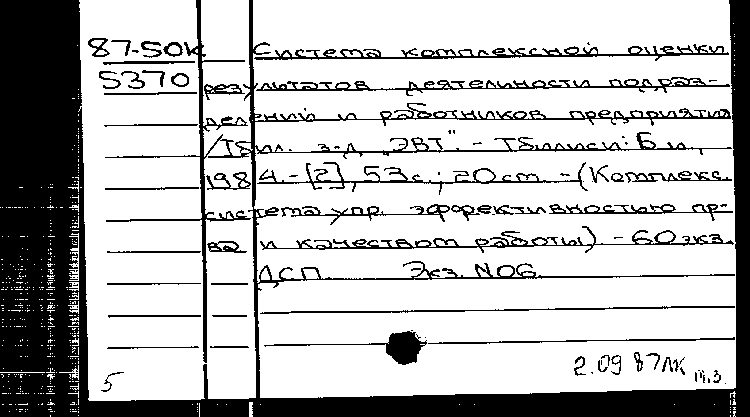 87-50К Система комплексной оценки
5370 результатов деятельности подраз-
делений и работников предприятия
/Тбил. з-д "ЭВТ". - Тбилиси: Б.и.,
1984. - [2], 53с.; 20см. - (Комплекс.
система упр. эффективностью пр-
ва и качеством работы). - 60 экз.
ДСП. Экз. №06
2.09 87 ЛК м.з.
5